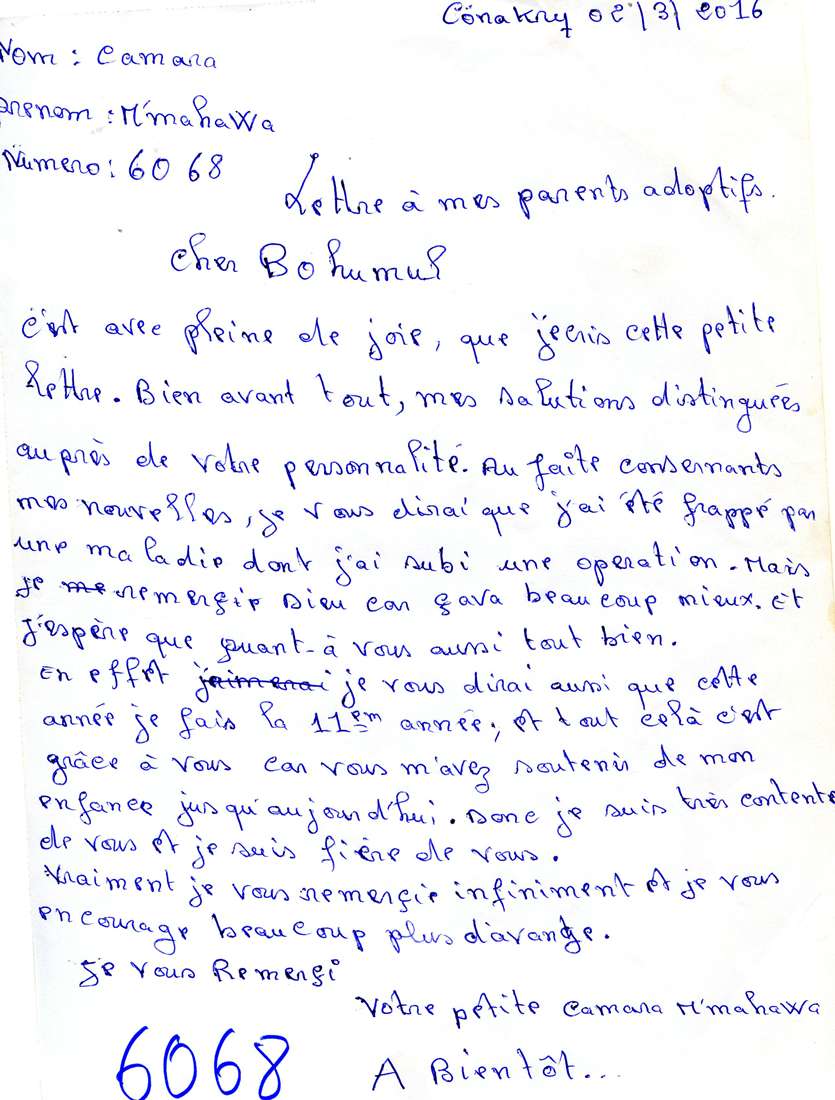 Cōnakry 02/3/2016
Nom : Camara
prenom : M'mahawa
Numero : 60 68
Lettre à mes parents adoptifs.
Cher Bohumul
c'est avec pleine de joie, que j'ecris cette petite
lettre. Bien avant tout, mes salutions distinguées
auprès de votre personnalité. Au faite consernants
mes nouvelles, je vous dirai que j'ai été frappé par
une maladie dont j'ai subi une operation. Mais
je me remerçie Dieu car çava beaucoup mieux. Et
j'espère que quant-à vous aussi tout bien.
En effet jaimerai je vous dirai aussi que cette
année je fais la 11em année, et tout celà c'est
grâce à vous car vous m'avez soutenir de mon
enfance jusqu'aujourd'hui. Donc je suis très contente
de vous et je suis fière de vous.
Vraiment je vous remerçie infiniment et je vous
encourage beaucoup plus d'avange.
Je vous Remerçi
Votre petite Camara M'mahawa
6068
A Bientôt...